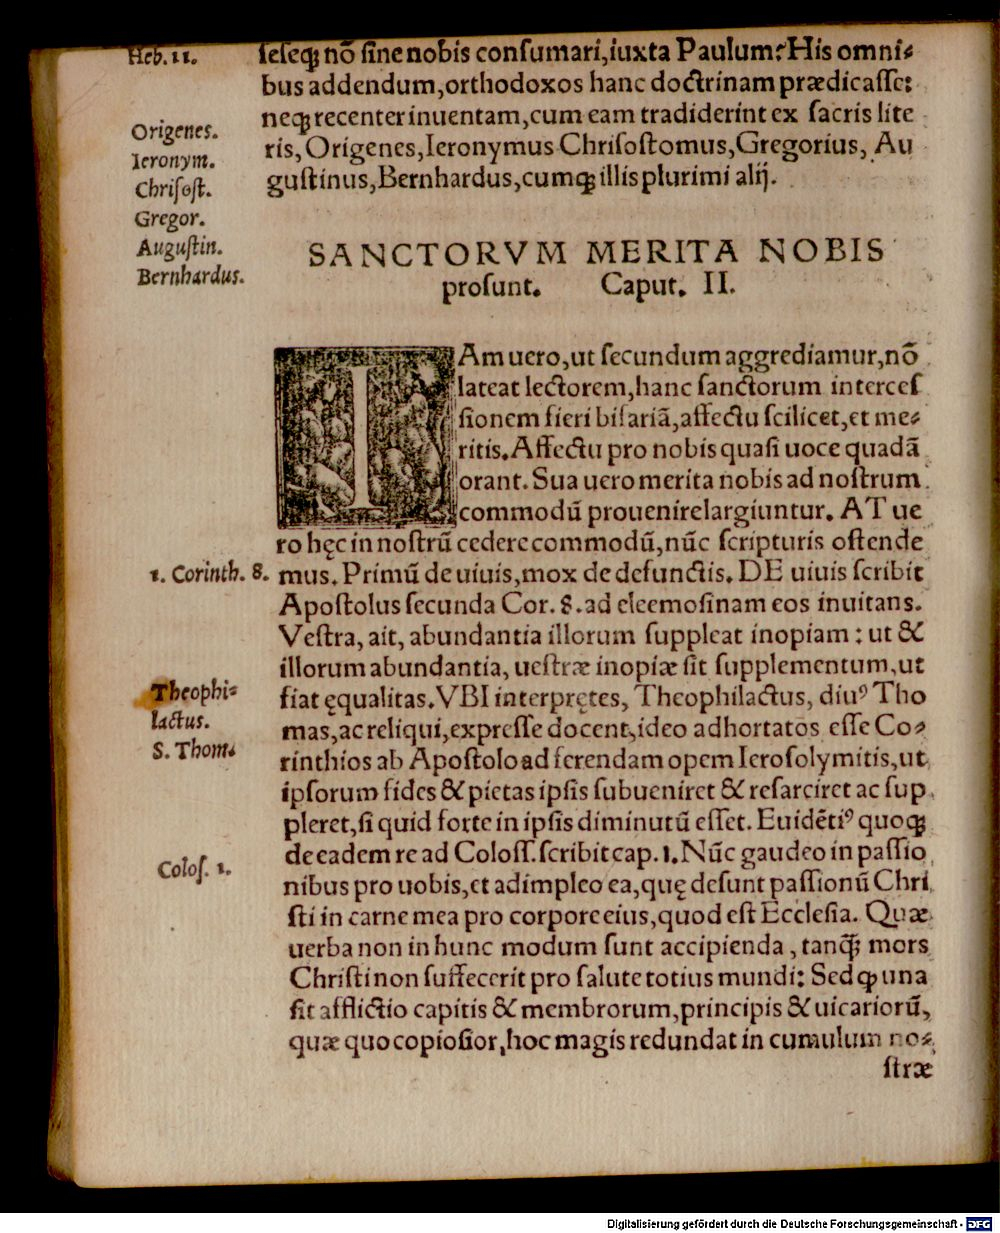 Heb. 11.
seseq; nō sine nobis consumari, iuxta Paulum? His omni⸗
bus addendum, orthodoxos hanc doctrinam prædicasse:
neq; recenter inuentam, cum eam tradiderint ex sacris lite
ris, Origenes, Ieronymus Chrisostomus, Gregorius, Au
gustinus, Bernhardus, cumq; illis plurimi alij.
Origenes.
Ieronym.
Chrisost.
Gregor.
Augustin.
Bernhardus.
SANCTORVM MERITA NOBIS
prosunt. Caput. II.
IAm uero, ut secundum aggrediamur, nō
lateat lectorem, hanc sanctorum interces
sionem fieri bifariā, affectu scilicet, et me⸗
ritis. Affectu pro nobis quasi uoce quadā
orant. Sua uero merita nobis ad nostrum
commodū prouenire largiuntur. AT ue
ro hęc in nostrū cedere commodū, nūc scripturis ostende
mus. Primū de uiuis, mox de defunctis. DE uiuis scribit
Apostolus secunda Cor. 8. ad eleemosinam eos inuitans.
Vestra, ait, abundantia illorum suppleat inopiam: ut &
illorum abundantia, uestræ inopiæ sit supplementum, ut
fiat ęqualitas. VBI interpretes, Theophilactus, diuꝰ Tho
mas, ac reliqui, expresse docent, ideo adhortatos esse Co⸗
rinthios ab Apostolo ad ferendam opem Ierosolymitis, ut
ipsorum fides & pietas ipsis subueniret & resarciret ac sup
pleret, si quid forte in ipsis diminutū esset. Euidētiꝰ quoq;
de eadem re ad Coloss. scribit cap. 1. Nūc gaudeo in passio
nibus pro uobis, et adimpleo ea, quę desunt passionū Chri
sti in carne mea pro corpore eius, quod est Ecclesia. Quæ
uerba non in hunc modum sunt accipienda, tanq̄; mors
Christi non suffecerit pro salute totius mundi: Sed ꝙ una
sit afflictio capitis & membrorum, principis & uicariorū,
quæ quo copiosior, hoc magis redundat in cumulum no⸗
stræ
1. Corinth. 8.
Theophi⸗
lactus.
S. Thom.
Colos. 1.
Digitalisierung gefördert durch die Deutsche Forschungsgemeinschaft - DFG